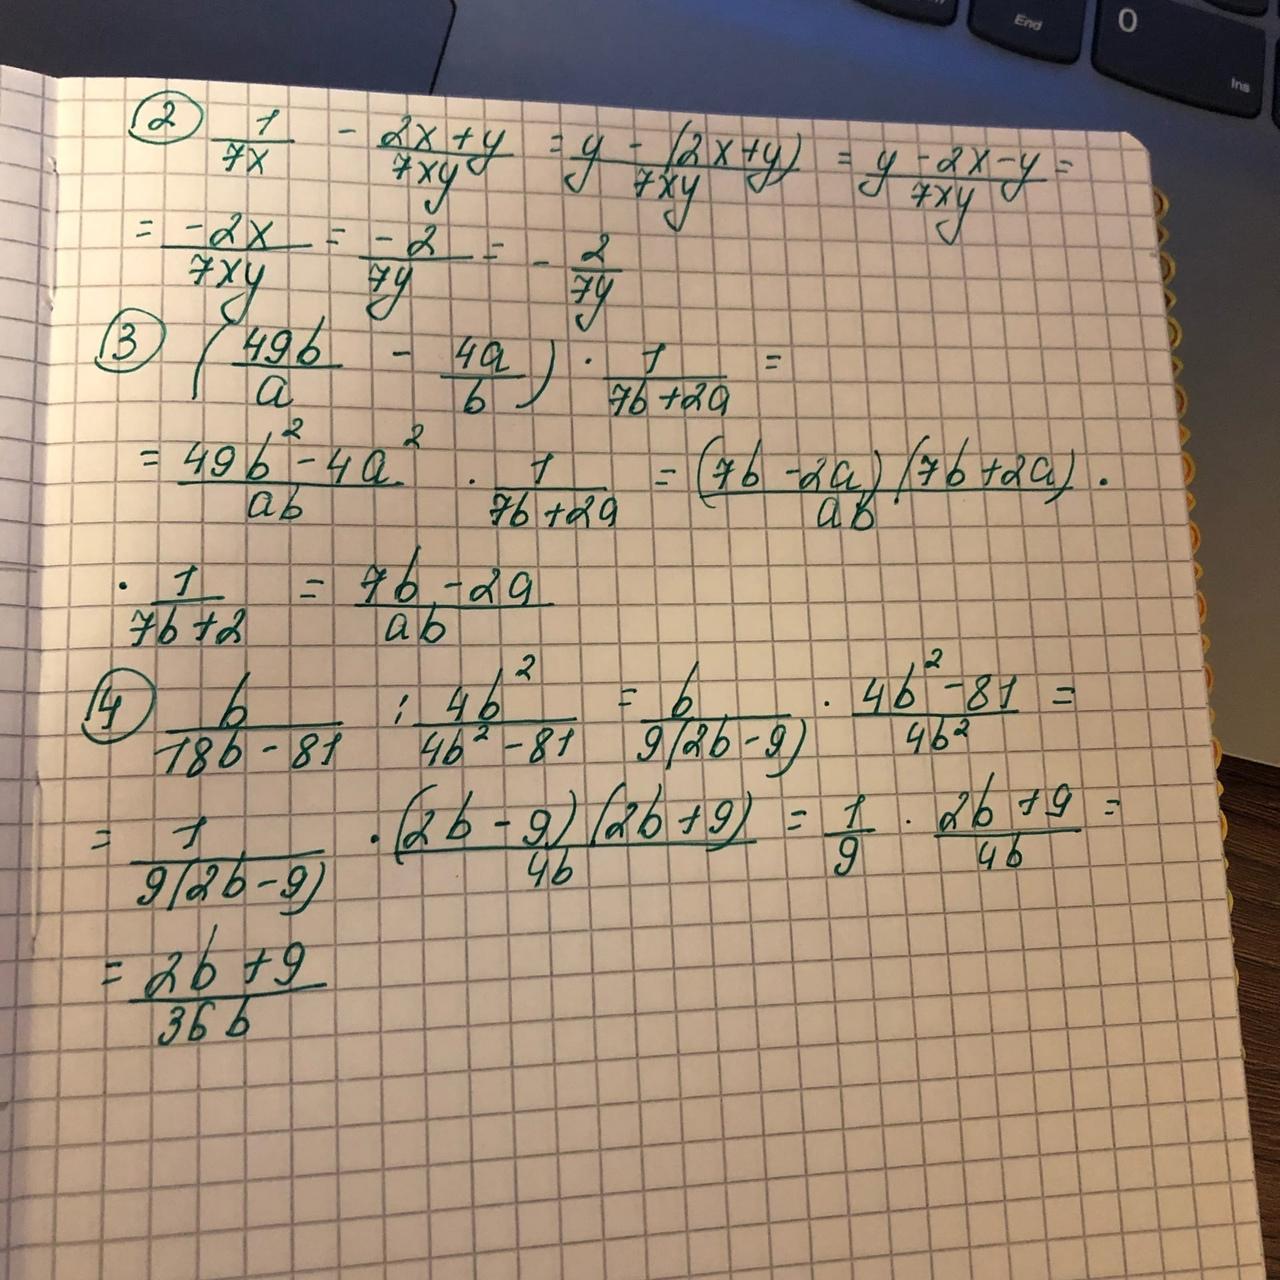 End 0 Ins
② 1/7x - 2x+y/7xy = y-(2x+y)/7xy = y-2x-y/7xy =
= -2x/7xy = -2/7y = - 2/7y
③ (49b/a - 4a/b) · 1/7b+2a =
= 49b²-4a²/ab · 1/7b+2a = (7b-2a)(7b+2a)/ab ·
· 1/7b+2 = 7b-2a/ab
④ b/18b-81 : 4b²/4b²-81 = b/9(2b-9) · 4b²-81/4b² =
= 1/9(2b-9) · (2b-9)(2b+9)/4b = 1/9 · 2b+9/4b =
= 2b+9/36b